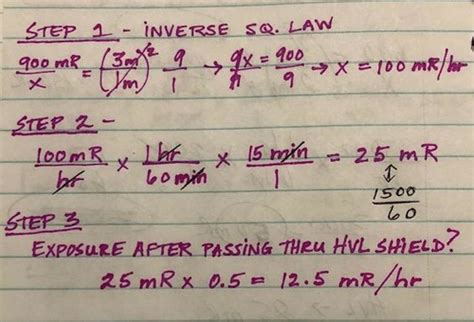 STEP 1 - INVERSE SQ. LAW
900 mR/x = (3m/1m)^2 9/1 → 9x/9 = 900/9 → x = 100 mR/hr
STEP 2 -
100mR/hr x 1hr/60min x 15 min/1 = 25 mR
↕
1500/60
STEP 3
EXPOSURE AFTER PASSING THRU HVL SHIELD?
25 mR x 0.5 = 12.5 mR/hr